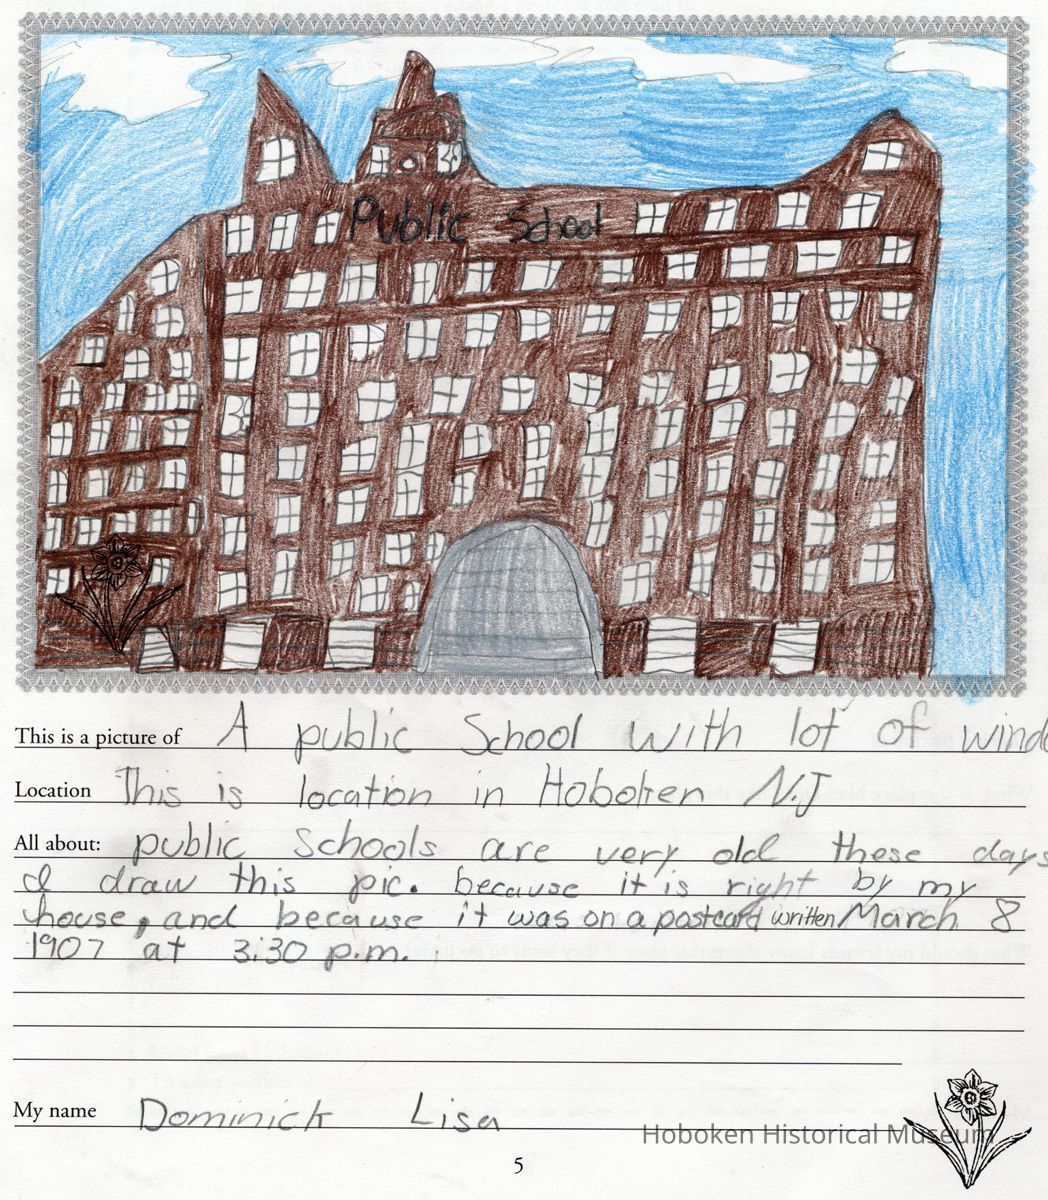 Public School
This is a picture of A public School with lot of
Location This is location in Hoboken N.J
All about: public schools are very old these days
I draw this pic. because it is right by my
house, and because it was on a postcard written March 8
1907 at 3:30 p.m.
My name Dominick Lisa
Hoboken Historical Museum
5